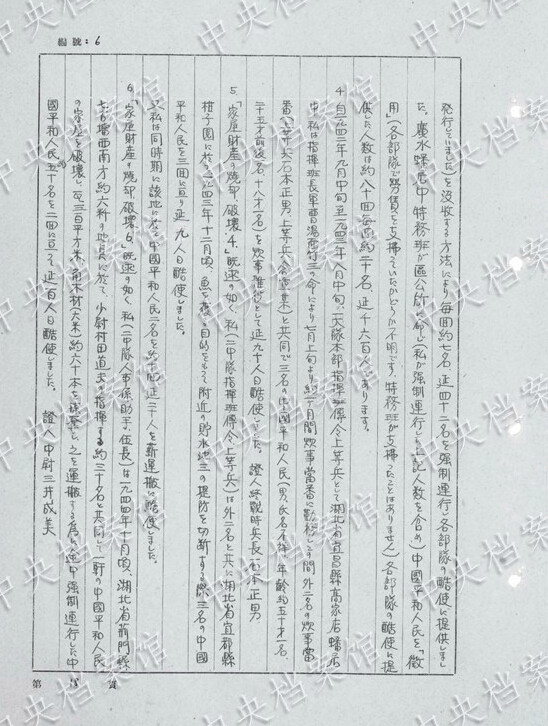 編號：6
発行していました)を没收する方法により每囬約七名、延四十二名を強制運行し各部隊の酷使に提供しまし
た。廣水蟠居中、特務班が區公所に命じ(私が強制運行した上記人数を含め)中國平和人民を「徴
用」(各部隊で勞賃を支拂っていたかどうか不明です。特務班が支拂ったことはありません)各部隊の酷使に提
供した人数は約八十囬每囬約二十名、延千六百名であります。
4 自一九四二年九月中旬至一九四三年八月中旬、二大隊本部指揮班傳令上等兵として湖北省宜昌縣高家店蟠居
中、私は指揮班長軍曹湯 竹三の命により七月上旬より約一ヶ月間炊事當番に勤務しる間外二名の炊事當
番(上等兵石本正男、上等兵 )と共同で三名の中國平和人民(男、氏名不詳、年齢約五十才一名、
二十五才前後一名、十八才一名)を炊事雜役として延九十人日酷使しました。證人終戰時兵長石本正男
5 「家屋財産の燒却、破壊4」既述の如く、私(二中隊指揮班傳令上等兵)は外二名と共に湖北省宜都縣
柑子園に於て一九四三年十二月頃、魚を獲る目的をもって附近の貯水池三の堤防を切断する際三名の中國
平和人民を三囬に亘り延九人日酷使しました。
又私は同時期に該地に於て中國平和人民二名を約十囬延二十人を薪運搬に酷使しました。
6 「家屋財産の燒却、破壊6」既述の如く、私(二中隊人事係助手、伍長)は一九四四年十月頃、湖北省荊門縣
七 塘西南方約六粁の地点に於て、少尉村田道夫の指揮する約三十名と共同して一軒の中國平和人民
の家屋を破壊し瓦三百平方米、角木材(大米)約六十本を掠奪し之を運搬する為め途中強制運行した中
國平和人民約五十名を二囬に亘って延百人日酷使しました。 證人中尉三井成美
第 頁
中央档案馆